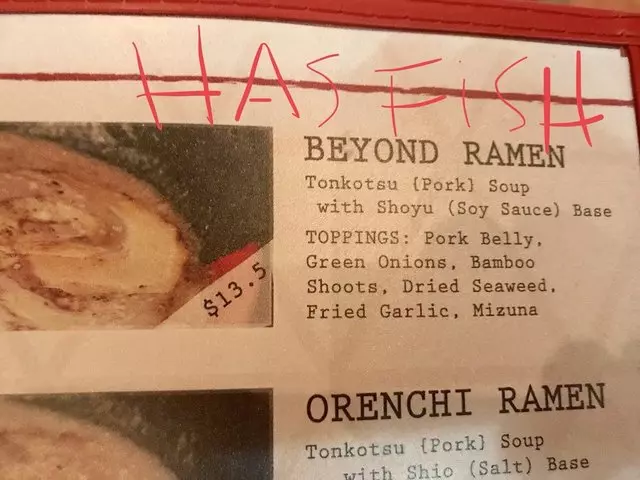 HAS FISH
BEYOND RAMEN
Tonkotsu {Pork} Soup
with Shoyu (Soy Sauce) Base
TOPPINGS: Pork Belly,
Green Onions, Bamboo
Shoots, Dried Seaweed,
Fried Garlic, Mizuna
$13.5
ORENCHI RAMEN
Tonkotsu {Pork} Soup
with Shio (Salt) Base